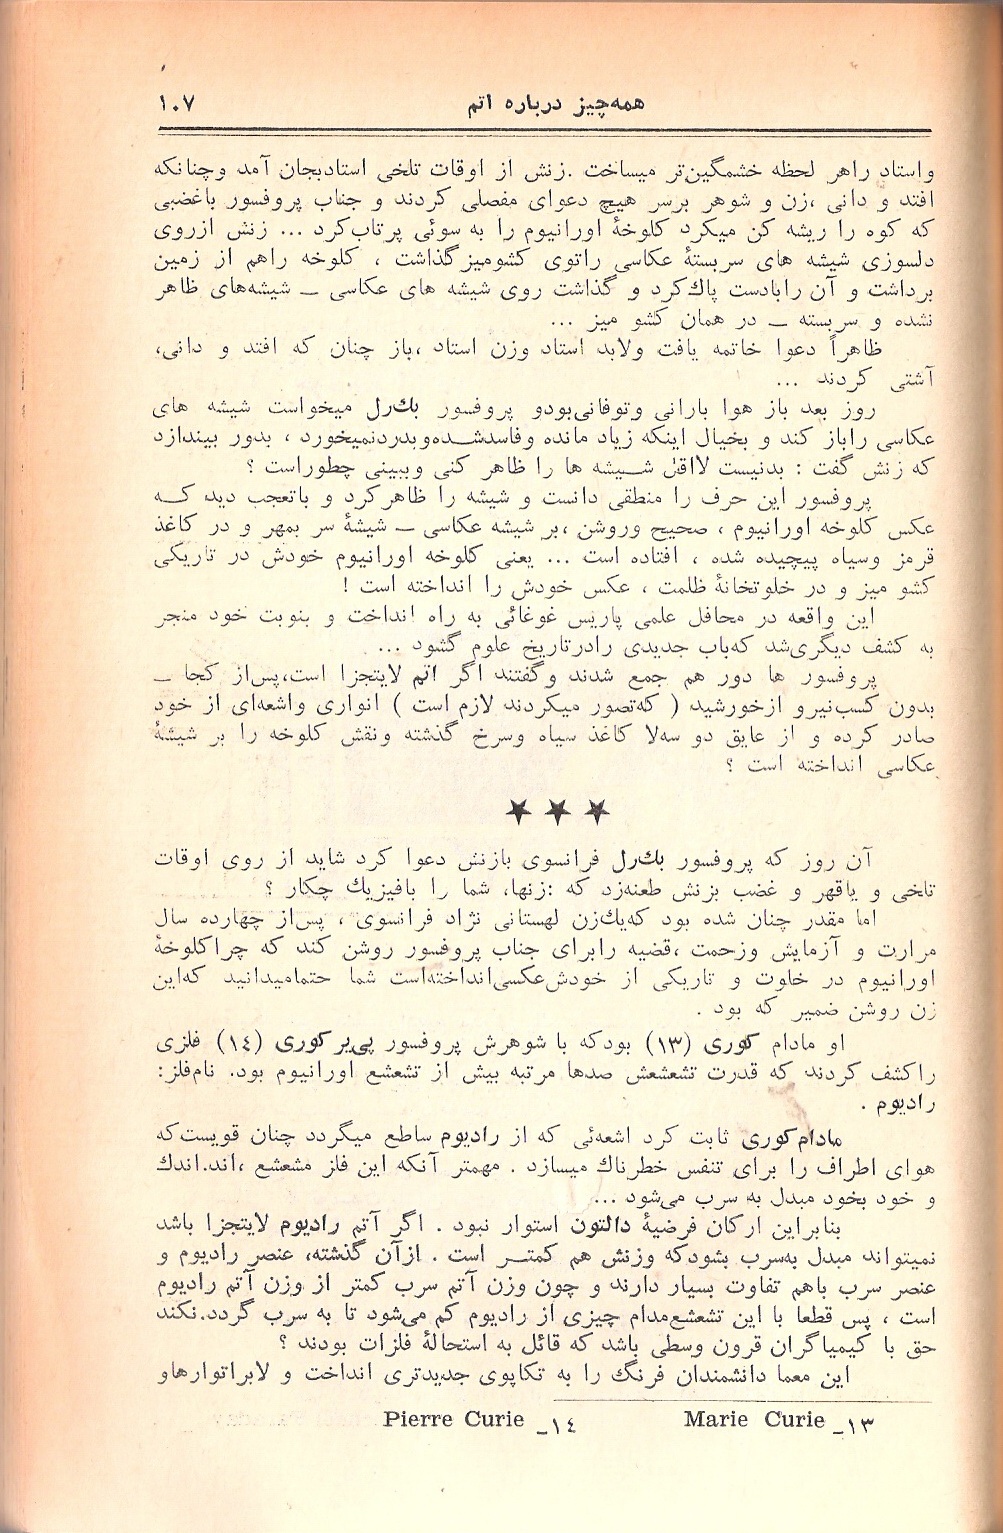 همه‌چیز درباره اتم ۱۰۷
واستاد راهر لحظه خشمگین‌تر میساخت .زنش از اوقات تلخی استادبجان آمد وچنانکه
افتد و دانی ،زن و شوهر برسر هیچ دعوای مفصلی کردند و جناب پروفسور باغضبی
که کوه را ریشه کن میکرد کلوخهٔ اورانیوم را به سوئی پرتاب‌کرد ... زنش ازروی
دلسوزی شیشه های سربستهٔ عکاسی راتوی کشومیزگذاشت ، کلوخه راهم از زمین
برداشت و آن رابادست پاك‌کرد و گذاشت روی شیشه های عکاسی ــ شیشه‌های ظاهر
نشده و سربسته ــ در همان کشو میز ...
ظاهراً دعوا خاتمه یافت ولابد استاد وزن استاد ،باز چنان که افتد و دانی،
آشتی کردند ...
روز بعد باز هوا بارانی وتوفانی‌بودو پروفسور بك‌رل میخواست شیشه های
عکاسی راباز کند و بخیال اینکه زیاد مانده وفاسدشده‌وبدردنمیخورد ، بدور بیندازد
که زنش گفت : بدنیست لااقل شیشه ها را ظاهر کنی وببینی چطوراست ؟
پروفسور این حرف را منطقی دانست و شیشه را ظاهرکرد و باتعجب دید که
عکس کلوخه اورانیوم ، صحیح وروشن ،بر شیشه عکاسی ــ شیشهٔ سر بمهر و در کاغذ
قرمز وسیاه پیچیده شده ، افتاده است ... یعنی کلوخه اورانیوم خودش در تاریکی
کشو میز و در خلوتخانهٔ ظلمت ، عکس خودش را انداخته است !
این واقعه در محافل علمی پاریس غوغائی به راه انداخت و بنوبت خود منجر
به کشف دیگری‌شد که‌باب جدیدی رادرتاریخ علوم گشود ...
پروفسور ها دور هم جمع شدند وگفتند اگر اتم لایتجزا است،پس‌از کجا ــ
بدون کسب‌نیرو ازخورشید ( که‌تصور میکردند لازم است ) انواری واشعه‌ای از خود
صادر کرده و از عایق دو سه‌لا کاغذ سیاه وسرخ گذشته ونقش کلوخه را بر شیشهٔ
عکاسی انداخته است ؟
★ ★ ★
آن روز که پروفسور بك‌رل فرانسوی بازنش دعوا کرد شاید از روی اوقات
تلخی و یاقهر و غضب بزنش طعنه‌زد که :زنها، شما را بافیزیك چکار ؟
اما مقدر چنان شده بود که‌یك‌زن لهستانی نژاد فرانسوی ، پس‌از چهارده سال
مرارت و آزمایش وزحمت ،قضیه رابرای جناب پروفسور روشن کند که چراکلوخهٔ
اورانیوم در خلوت و تاریکی از خودش‌عکسی‌انداخته‌است شما حتمامیدانید که‌این
زن روشن ضمیر که بود .
او مادام کوری (۱۳) بودکه با شوهرش پروفسور پی‌یر کوری (۱٤) فلزی
راکشف کردند که قدرت تشعشعش صدها مرتبه بیش از تشعشع اورانیوم بود. نام‌فلز:
رادیوم .
مادام‌کوری ثابت کرد اشعه‌ئی که از رادیوم ساطع میگردد چنان قویست‌که
هوای اطراف را برای تنفس خطرناك میسازد . مهمتر آنکه این فلز مشعشع ،اند.اندك
و خود بخود مبدل به سرب می‌شود ...
بنابراین ارکان فرضیهٔ دالتون استوار نبود . اگر آتم رادیوم لایتجزا باشد
نمیتواند مبدل به‌سرب بشودکه وزنش هم کمتر است . ازآن گذشته، عنصر رادیوم و
عنصر سرب باهم تفاوت بسیار دارند و چون وزن آتم سرب کمتر از وزن آتم رادیوم
است ، پس قطعا با این تشعشع‌مدام چیزی از رادیوم کم می‌شود تا به سرب گردد.نکند
حق با کیمیاگران قرون وسطی باشد که قائل به استحالهٔ فلزات بودند ؟
این معما دانشمندان فرنگ را به تکاپوی جدیدتری انداخت و لابراتوارهاو
۱۳ــ Marie Curie ۱٤ــ Pierre Curie